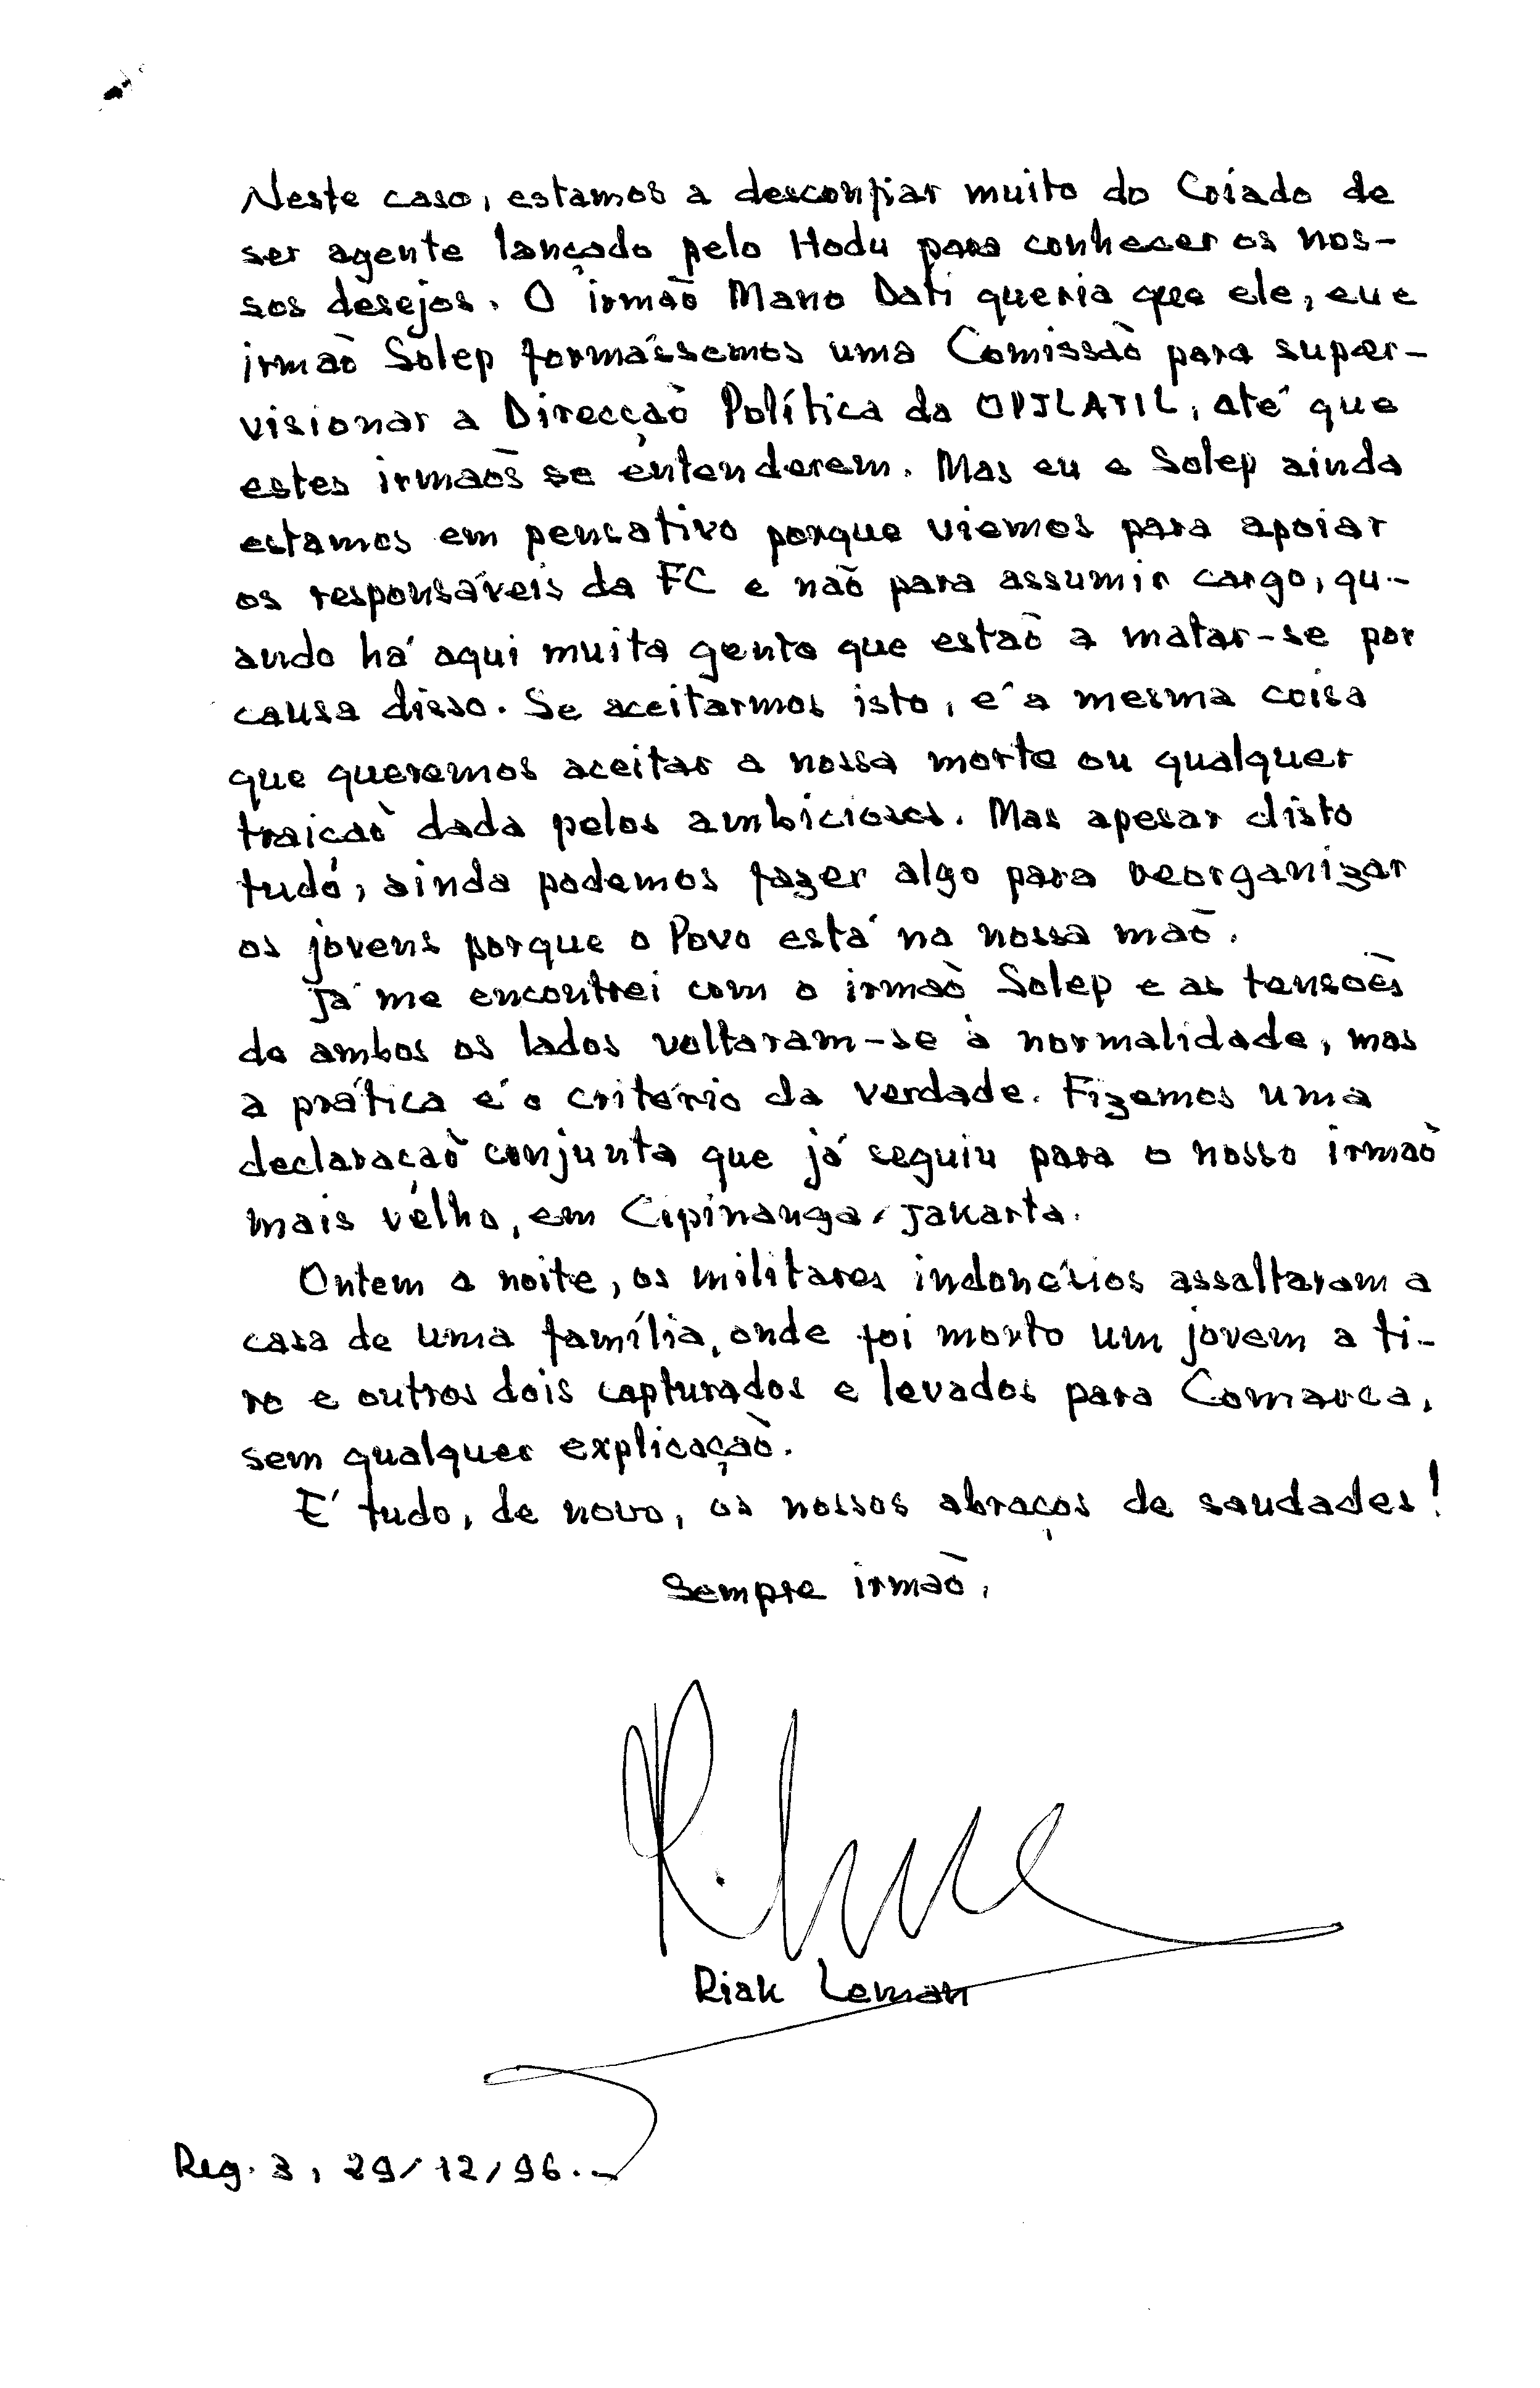 Neste caso, estamos a desconfiar muito do Criado de
ser agente lançado pelo Hodu para conhecer os nos-
sos desejos. O irmão Mano Dati queria que ele, eu e
irmão Solep formássemos uma Comissão para super-
visionar a Direcção Política da OPJLATIL, até que
estes irmãos se entenderem. Mas eu e Solep ainda
estamos em pensativo porque viemos para apoiar
os responsáveis da FC e não para assumir cargo, qu-
ando há aqui muita gente que estão a matar-se por
causa disso. Se aceitarmos isto, é a mesma coisa
que queremos aceitar a nossa morte ou qualquer
traicão dada pelos ambiciosos. Mas apesar disto
tudo, ainda podemos fazer algo para reorganizar
os jovens porque o Povo está na nossa mão.
Já me encontrei com o irmão Solep e as tensões
de ambos os lados voltaram-se à normalidade, mas
a prática é o critério da verdade. Fizemos uma
declaração conjunta que já seguiu para o nosso irmão
mais velho, em Cipinanga, Jakarta.
Ontem a noite, os militares indonésios assaltaram a
casa de uma família, onde foi morto um jovem a ti-
ro e outros dois capturados e levados para Comarca,
sem qualquer explicação.
É tudo, de novo, os nossos abraços de saudades!
Sempre irmão,
Riak Leman
Reg. 3, 29/12/96.-